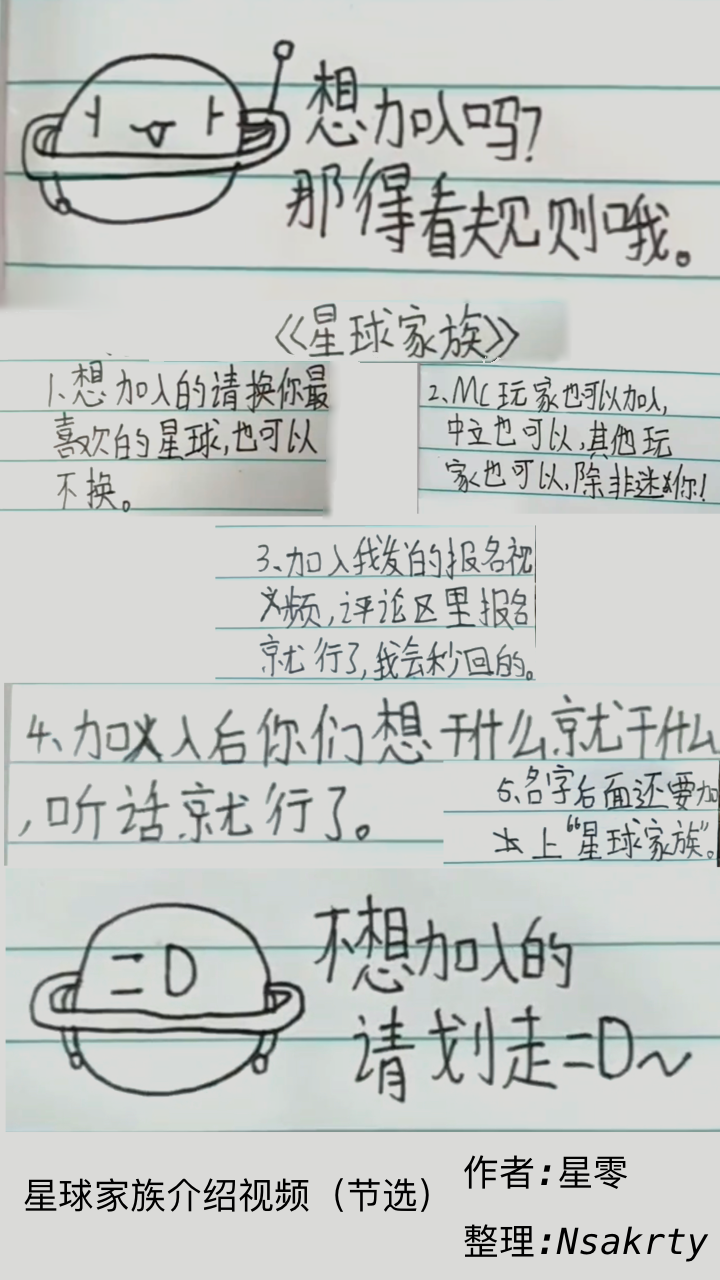 想加入吗?
那得看规则哦。
《星球家族》
1、想加入的请换你最
喜欢的星球,也可以
不换。
2、MC玩家也可以加入,
中立也可以,其他玩
家也可以,除非迷你!
3、加入我发的报名视
频,评论区里报名
就行了,我会秒回的。
4、加入后你们想干什么就干什么
,听话就行了。
5、名字后面还要加
上“星球家族”。
=D
不想加入的
请划走=D~
星球家族介绍视频（节选）
作者:星零
整理:Nsakrty